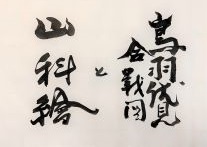 鳥羽伏見
合戦図
と
山科繪